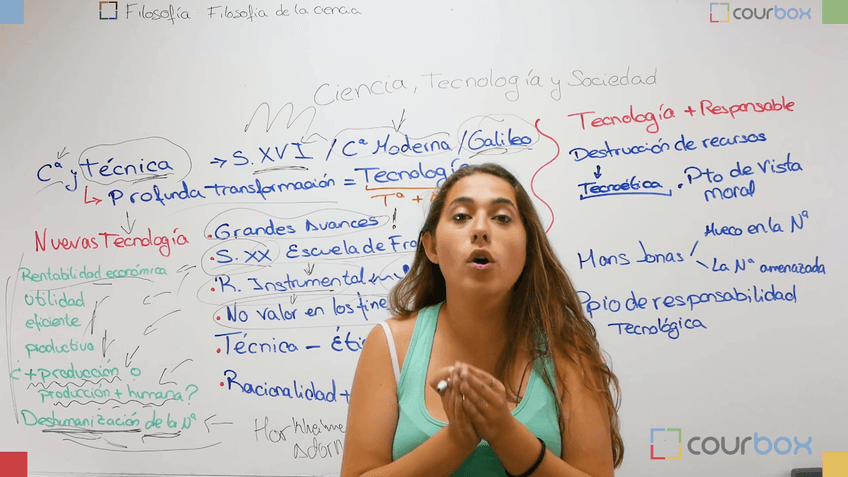 Filosofía: Filosofía de la ciencia
courbox
Ciencia, Tecnología y Sociedad
Cª y técnica → S. XVI / Cª Moderna / Galileo
↳ Profunda transformación = Tecnología
Tª +
Nuevas Tecnología
Rentabilidad económica
utilidad
eficiente
productiva
¿ + producción o
producción + humana?
Deshumanización de la Nª
• Grandes Avances!
• S. XX Escuela de
• R. Instrumental
• No valor en los
• Técnica –
• Racionalidad +
Tecnología + Responsable
Destrucción de recursos
Tecnoética . Pto de vista
moral
Hans Jonas
Hueco en la Nª
La Nª amenazada
Ppio de responsabilidad
Tecnológica
courbox